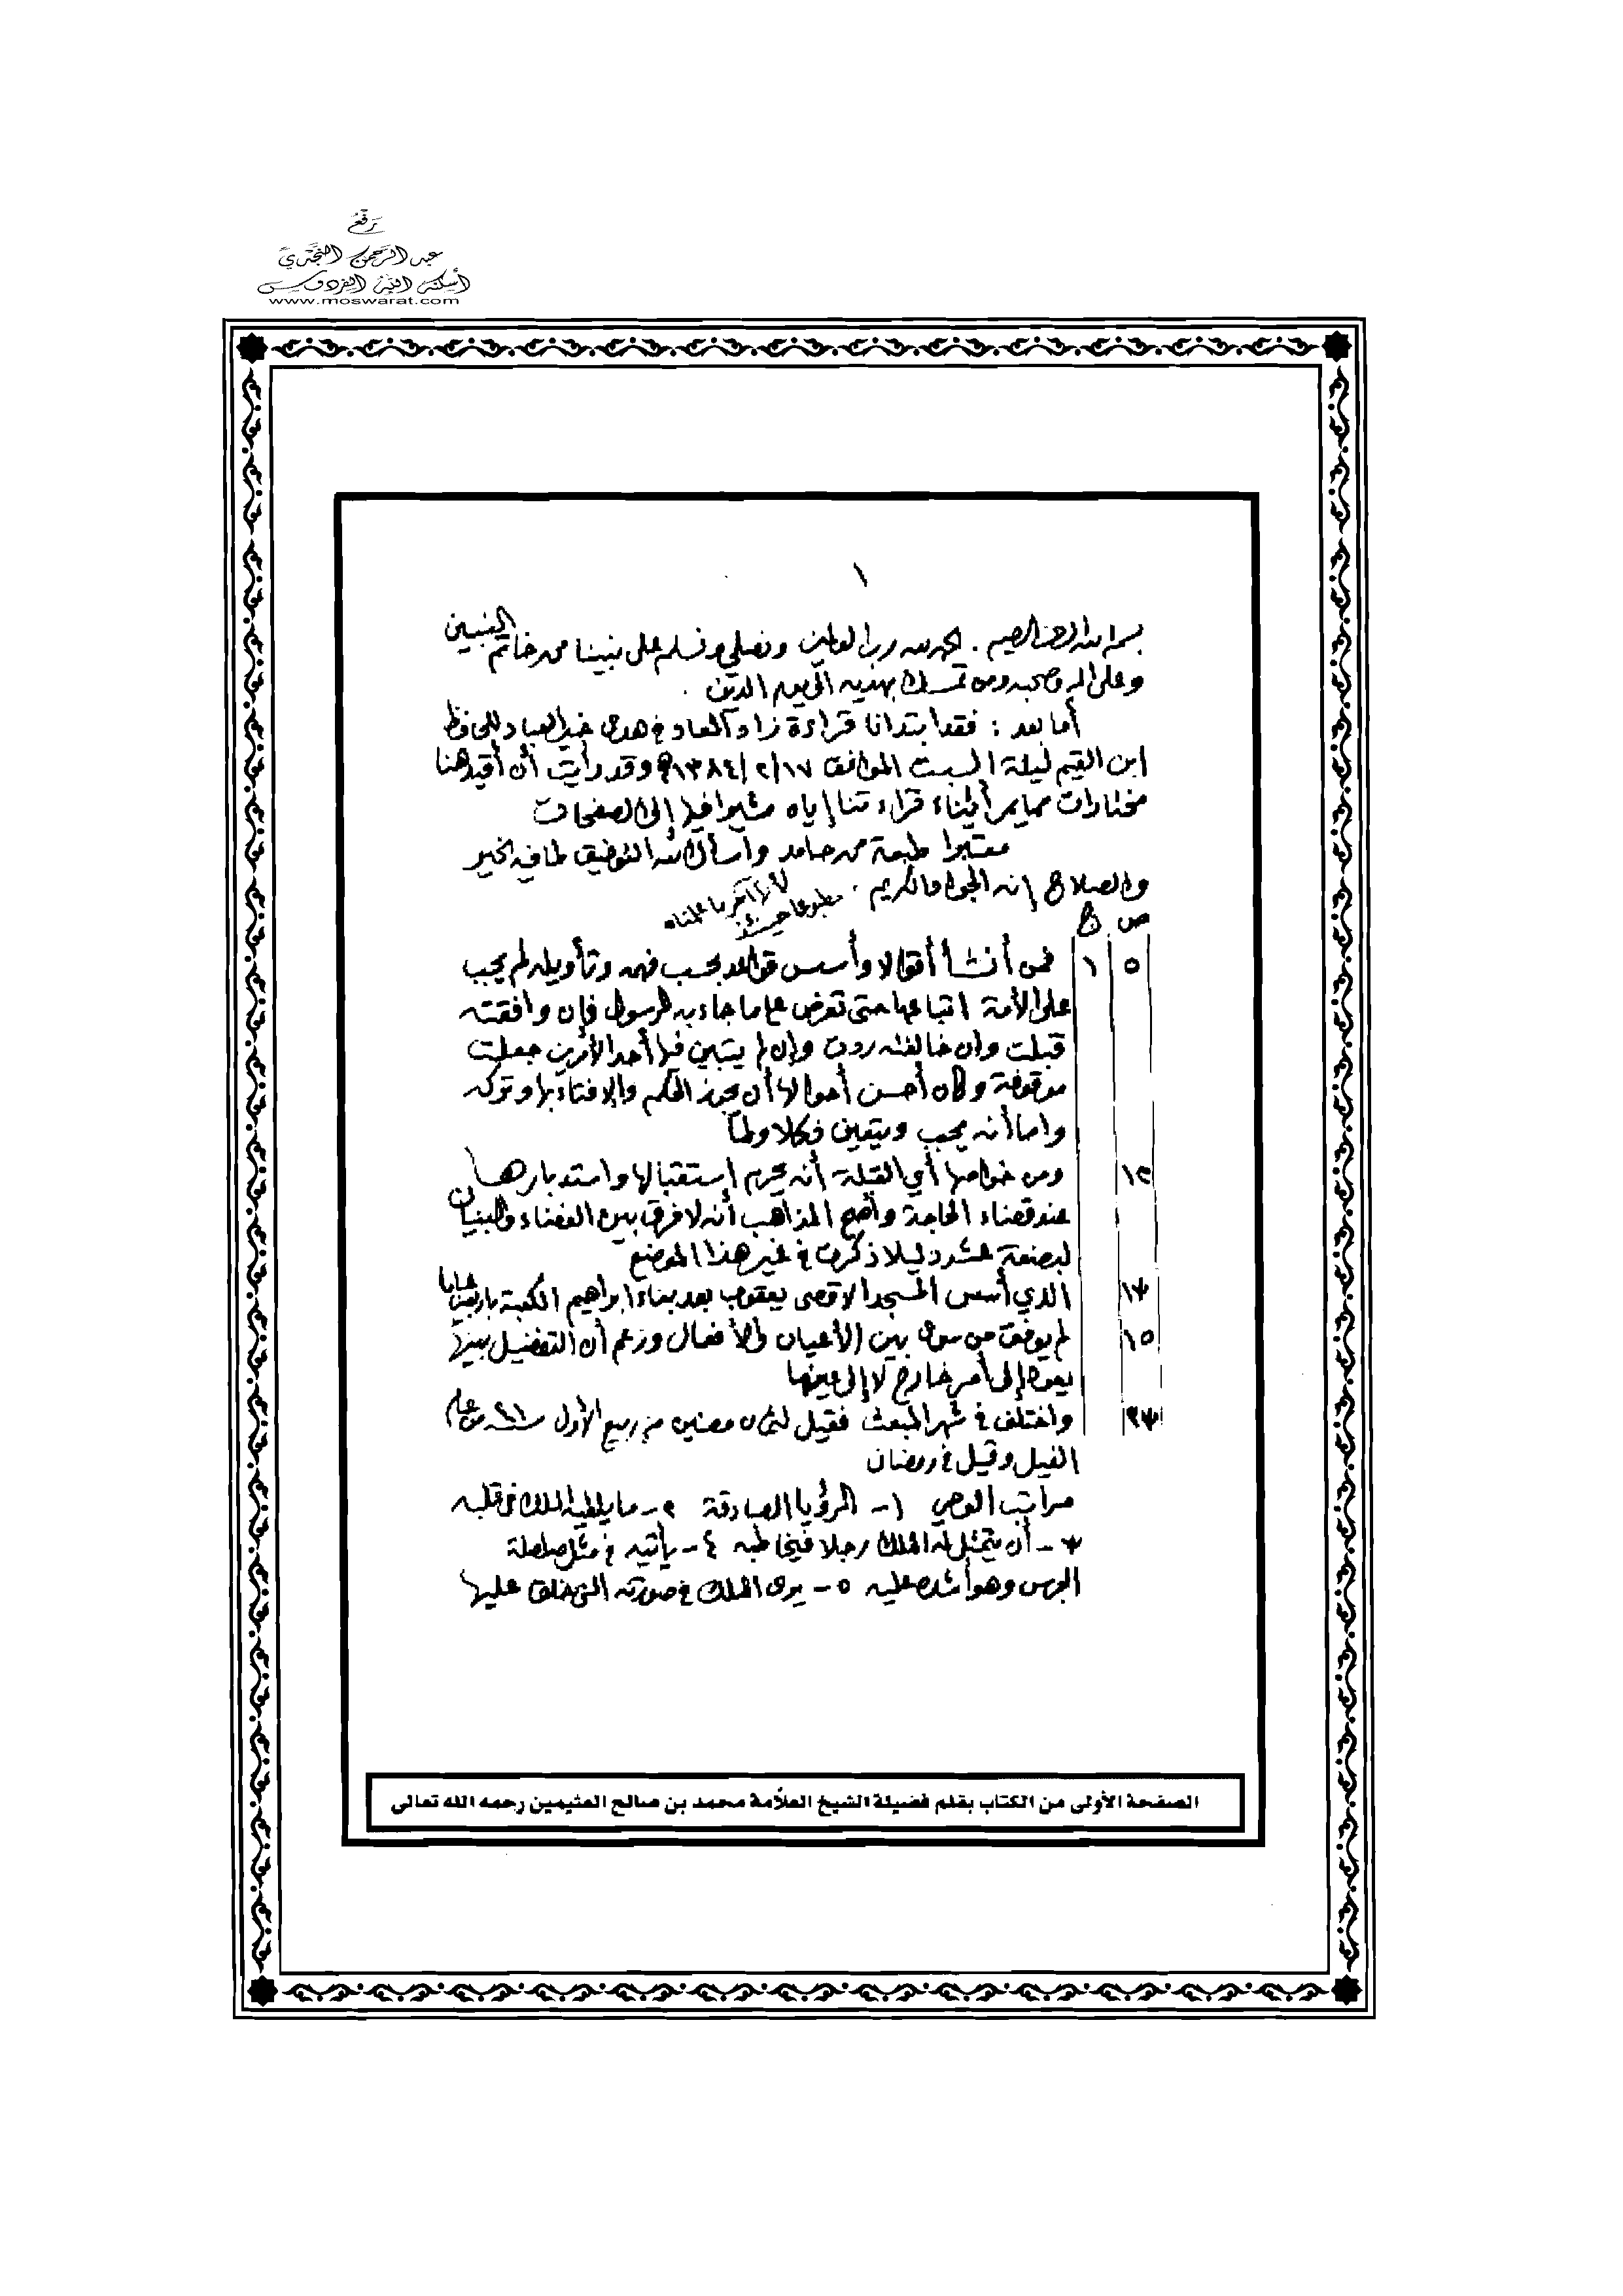 رفع
عبد الرحمن النجدي
أسكنه الله الفردوس
www.moswarat.com
١
بسم الله الرحمن الرحيم . الحمد لله رب العالمين ونصلي ونسلم على نبينا محمد خاتم النبيين
وعلى آله وصحبه ومن تمسك بهديه إلى يوم الدين .
أما بعد : فقد ابتدانا قراءة زاد المعاد في هدي خير العباد للحافظ
ابن القيم ليلة السبت الموافق ١٧/٢/١٣٨٤ﻫ وقد رأيت أن أقيد هنا
مختارات مما يمر أثناء قراءتنا إياه مشيرا فيها إلى الصفحات
معتبرا طبعة محمد حامد وأسأل الله التوفيق لما فيه الخير
والصلاح إنه الجواد الكريم .
ص ج
٥ ١ فمن أنشأ أقوالا وأسس قواعد بحسب فهمه وتأويله لم يجب
على الأمة اتباعها حتى تعرض على ما جاء به الرسول فإن وافقته
قبلت وإن خالفته ردت وإن لم يتبين فيها أحد الأمرين جعلت
موقوفة وكان أحسن أحوالها أن يجوز الحكم والإفتاء بها وتركه
واما أنه يجب ويتعين فكلا ولما
١٢ ومن خواصها أي القبلة أنه يحرم إستقبالها واستدبارها
عند قضاء الحاجة وأصح المذاهب أنه لا فرق بين الفضاء والبنيان
لبضعة عشر دليلا ذكرت في غير هذا الموضع
١٣ الذي أسس المسجد الاقصى يعقوب بعد بناء ابراهيم الكعبة باربعين عاما
١٥ لم يوفق من سوى بين الأعيان والأفعال وزعم أن التفضيل بينها
يعود إلى أمر خارج لا إلى عينها
٣٢ واختلف في شهر المبعث فقيل لثمان مضين من ربيع الأول سنة ٤١ من عام
الفيل وقيل في رمضان
مراتب الوحي ١- الرؤيا الصادقة ٢- ما يلقيه الملك في قلبه
٣- أن يتمثل له الملك رجلا فيخاطبه ٤- يأتيه في مثل صلصلة
الجرس وهو أشده عليه ٥- يرى الملك في صورته التي خلق عليها
الصفحة الأولى من الكتاب بقلم فضيلة الشيخ العلاّمة محمد بن صالح العثيمين رحمه الله تعالى